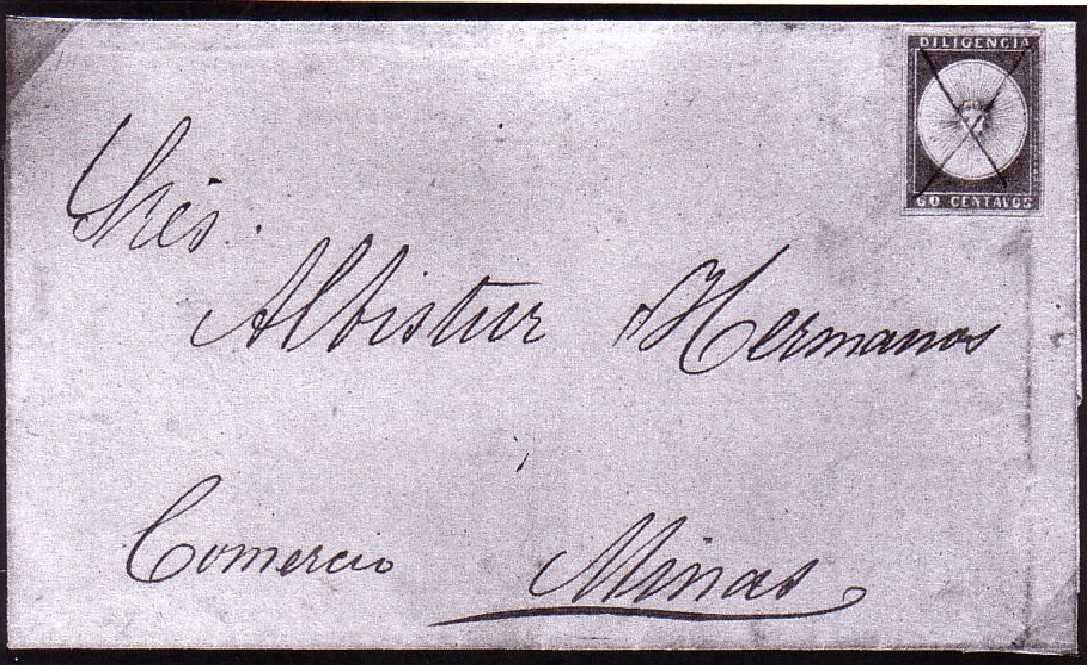 DILIGENCIA
60 CENTAVOS
Sres.
Albistur Hermanos
Comercio Minas